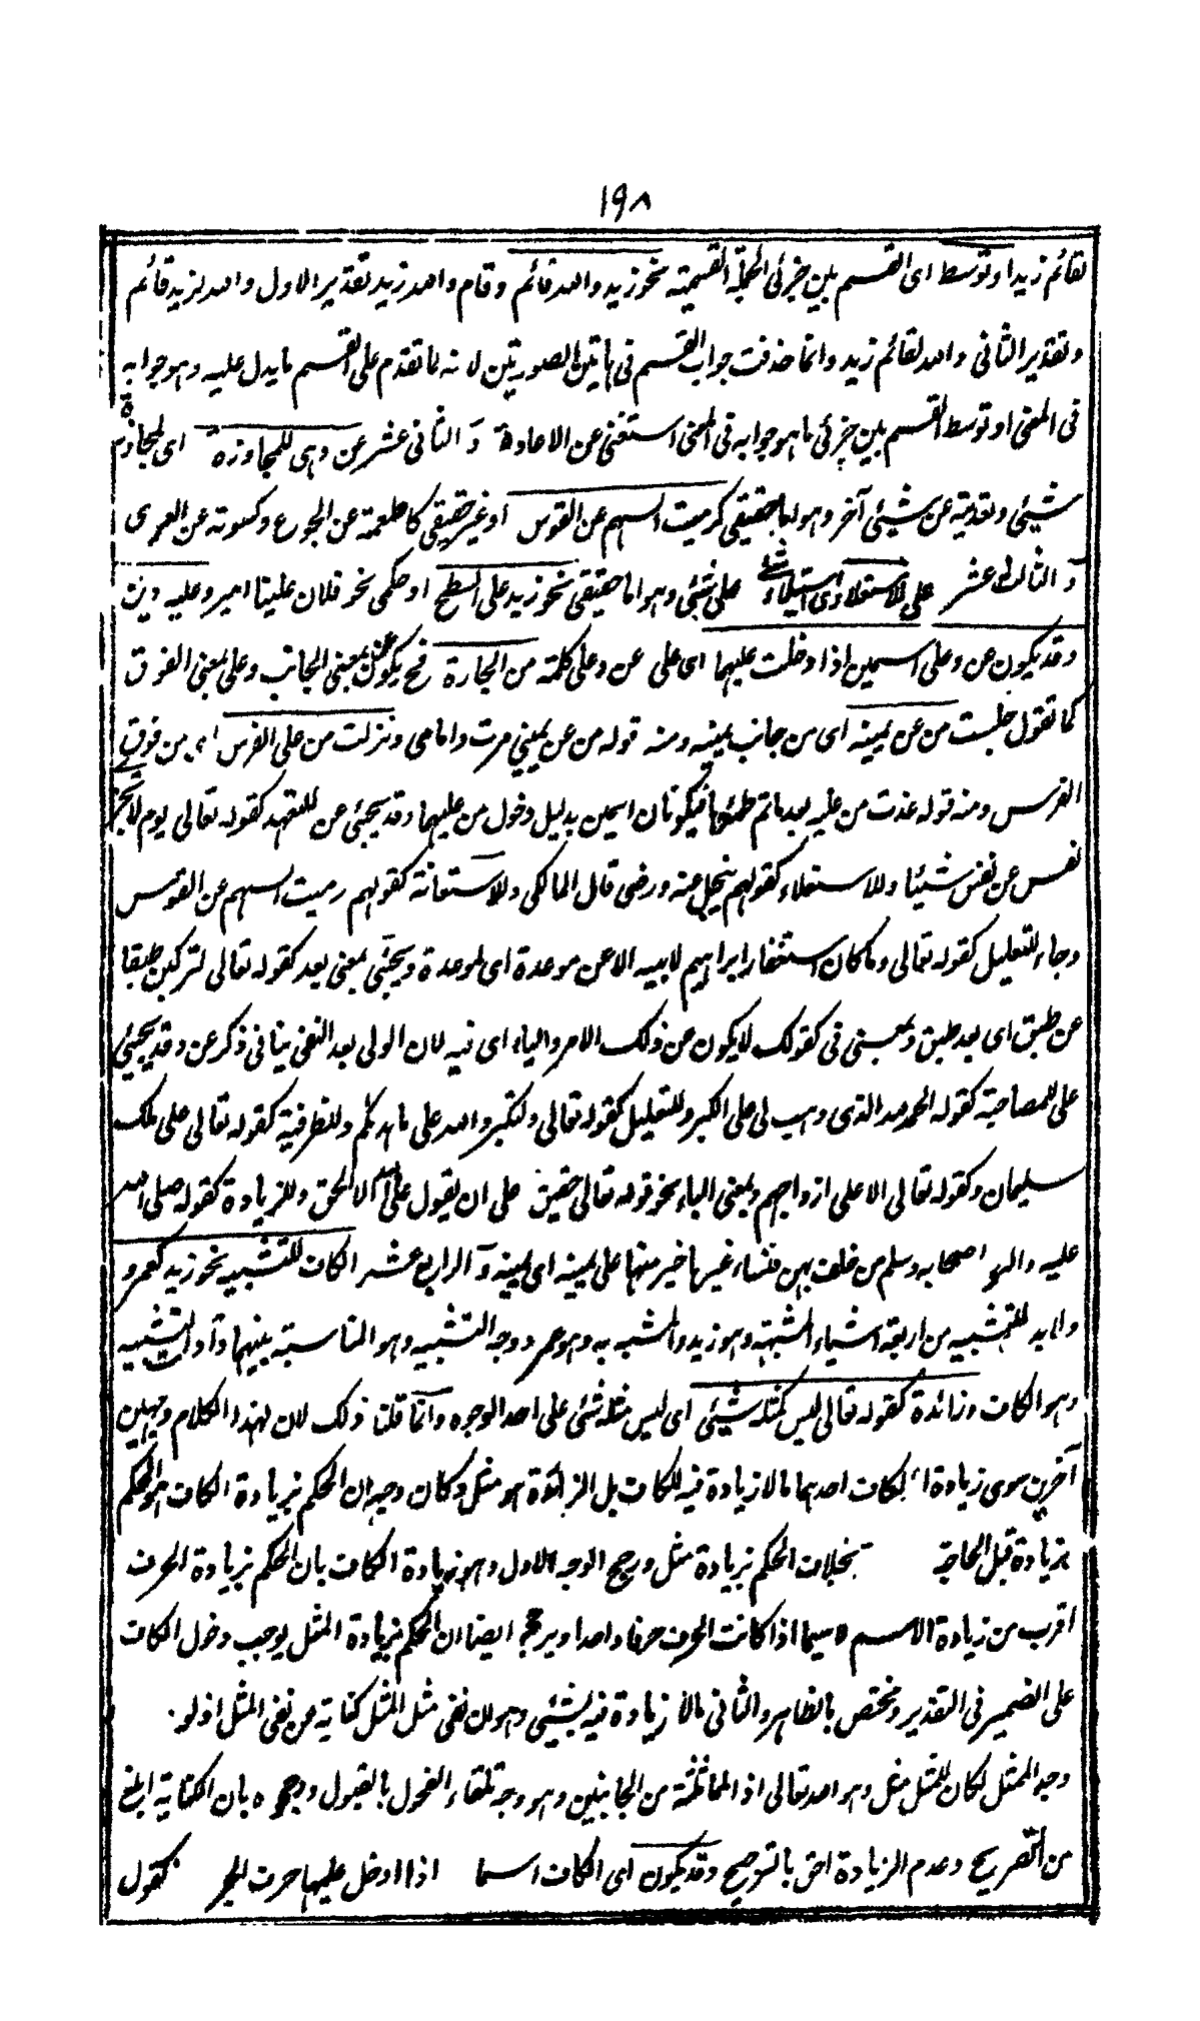 ١٩٨
لقائم زيد او توسط اى القسم بين جزئى الجملة القسمية نحو زيد والله قائم وقام والله زيد تقدير الاول والله لزيد قائم
وتقدير الثانى والله لقائم زيد وانما حذفت جواب القسم فى هاتين الصورتين لانه لما تقدم على القسم ما يدل عليه وهو جوابه
فى المعنى او توسط القسم بين جزئى ما هو جوابه فى المعنى استغنى عن الاعادة و الثانى عشر عن وهى للمجاوزة اى لمجاوزة
شيئى وتعديته عن شيئى آخر وهو اما حقيقى كرميت السهم عن القوس او غير حقيقى كاطعمته عن الجوع وكسوته عن العرى
و الثالث عشر على للاستعلاء اى استيلاء شئ على شئى وهو اما حقيقى نحو زيد على السطح او حكمى نحو فلان علينا امير وعليه دين
وقد يكون عن وعلى اسمين اذا دخلت عليهما اى على عن وعلى كلمة من الجارة فح يكون عن بمعنى الجانب وعلى بمعنى الفوق
كما تقول جلست من عن يمينه اى من جانب يمينه ومنه قوله من عن يمينى مرت وامامى ونزلت من على الفرس اى من فوق
الفرس ومنه قوله غدت من عليه بعد ما تم ظمئها فيكونان اسمين بدليل دخول من عليهما وقد يجيئى عن للتعهد كقوله تعالى يوم لا تجزى
نفس عن نفس شيئا وللاستعلاء كقولهم بخيل عنه ورضى قال المالكى وللاستعانة كقولهم رميت السهم عن القوس
وجاء للتعليل كقوله تعالى وما كان استغفار ابراهيم لابيه الا عن موعدة اى لموعدة ويجيئى بمعنى بعد كقوله تعالى لتركبن طبقا
عن طبق اى بعد طبق وبمعنى فى كقولك لا يكون عن ذلك الامر والياء اى نيه لان الولى بعد النفى ينافى ذكر عن وقد يجيئى
على للمصاحبة كقوله الحمد لله الذى وهب لى على الكبر وللتعليل كقوله تعالى ولتكبروا الله على ما هدىكم وللظرفية كقوله تعالى على ملك
سليمان وكقوله تعالى الا على ازواجهم وبمعنى الباء نحو قوله تعالى حقيق على ان لا يقول على الله الا الحق وللزيادة كقوله صلى الله
عليه واله واصحابه وسلم من حلف بيمين فشاء غيرها خير منها على يمينه اى يمينه و الرابع عشر الكاف للتشبيه نحو زيد كعمرو
ولابد للتشبيه من اربعة اشياء المشبه وهو زيد والمشبه به وهو عمرو ووجه التشبيه وهو المناسبة بينهما وآداة التشبيه
وهو الكاف وزائدة كقوله تعالى ليس كمثله شيئى اى ليس مثله شئى على احد الوجوه وانما قلنا ذلك لان لهذا الكلام وجهين
آخرين سوى زيادة الكاف احدهما ما لا زيادة فيه للكاف بل الزائدة هو مثل وكان وجه ان الحكم بزيادة الكاف هو الحكم
بزيادة قبل الحاجة بخلاف الحكم بزيادة مثل ورجح الوجه الاول وهو زيادة الكاف بان الحكم بزيادة الحرف
اقرب من زيادة الاسم لا سيما اذا كانت الحرف حرفا واحدا ويرجحه ايضا ان الحكم بزيادة المثل يوجب دخول الكاف
على الضمير فى التقدير ومختص بالظاهر والثانى ما لا زيادة فيه لشيئى وهو ان نفى مثل المثل كناية من نفى المثل اذ لو
وجد المثل لكان للمثل مثل وهو الله تعالى اذ المماثلة من الجانبين وهو وجه تلقاء الفحول بالقبول ورجحوه بان الكناية ابلغ
من التصريح وعدم الزيادة احق بالترجيح وقد يكون اى الكاف اسما اذا ادخل عليها حرف الجر كقول